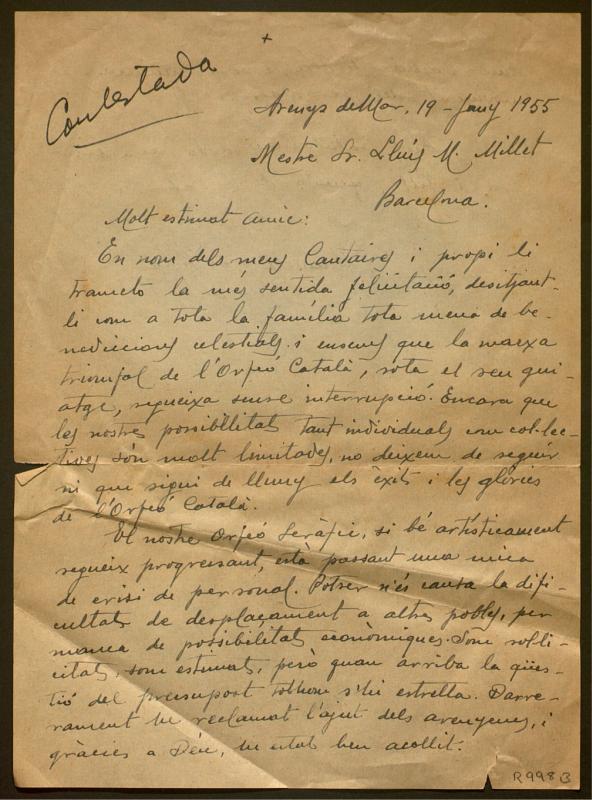 +
Contestada
Arenys de Mar, 19 - Juny 1955
Mestre Sr. Lluís M. Millet
Barcelona.
Molt estimat amic:
En nom dels meus Cantaires i propi li
trameto la més sentida felicitació, desitjant-
li com a tota la família tota mena de be-
nediccions celestials i ensems que la marxa
triomfal de l'Orfeó Català, sota el seu gui-
atge, segueixa sense interrupció. Encara que
les nostres possibilitats tant individuals com col·lec-
tives són molt limitades, no deixem de seguir
ni que sigui de lluny els èxits i les glòries
de l'Orfeó Català.
El nostre Orfeó Seràfic, si bé artísticament
segueix progressant, està passant una mica
de crisi de personal. Potser n'és causa la difi-
cultat de desplaçament a altres pobles, per
manca de possibilitats econòmiques. Som sol·li-
citats, som estimats, però quan arriba la qües-
tió del pressupost tothom s'hi estrella. Darre-
rament he reclamat l'ajut dels arenyencs, i
gràcies a Déu, he estat ben acollit.
R 998 B